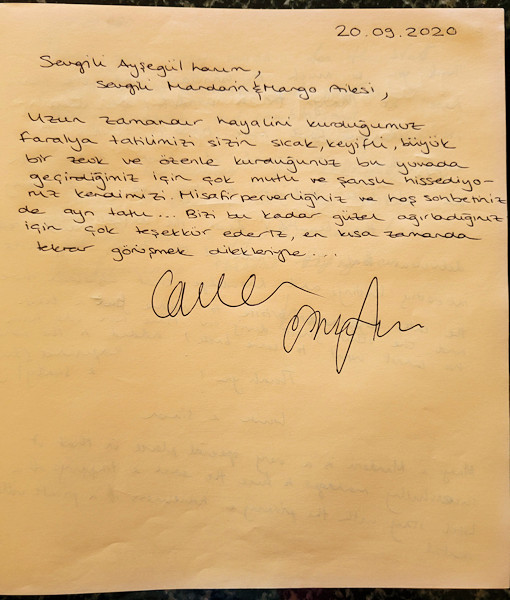 20.09.2020
Sevgili Ayşegül hanım,
Sevgili Mandarin & Mango Ailesi,
Uzun zamandır hayalini kurduğumuz
Faralya tatilimizi sizin sıcak, keyifli, büyük
bir zevk ve özenle kurduğunuz bu yuvada
geçirdiğimiz için çok mutlu ve şanslı hissediyo-
ruz kendimizi. Misafirperverliğiniz ve hoş sohbetiniz
de ayrı tatlı... Bizi bu kadar güzel ağırladığınız
için çok teşekkür ederiz, en kısa zamanda
tekrar görüşmek dilekleriyle...